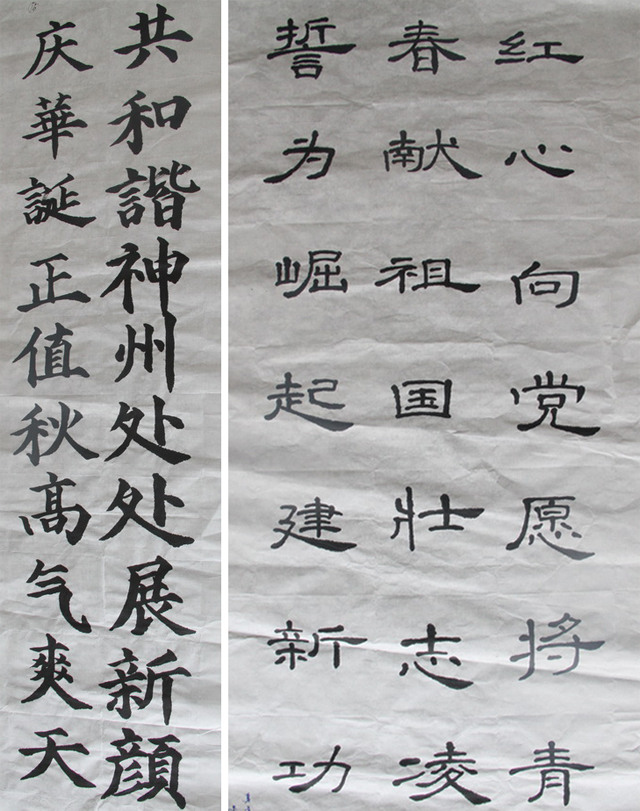 共和諧神州处处展新顔
庆華誕正值秋髙气爽天
红心向党愿将青
春献祖国壮志凌
誓为崛起建新功